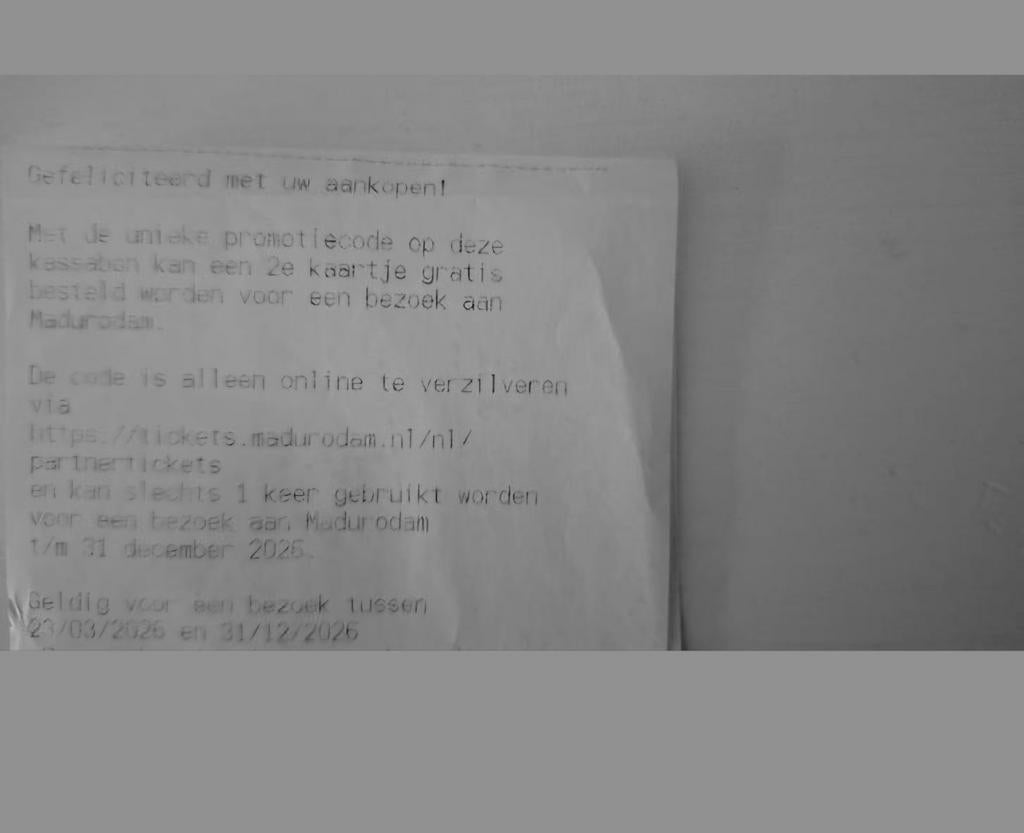 Gefeliciteerd met uw aankopen!
Met de unieke promotiecode op deze
kassabon kan een 2e kaartje gratis
besteld worden voor een bezoek aan
Madurodam.
De code is alleen online te verzilveren
via
https://tickets.madurodam.nl/nl/
partnertickets
en kan slechts 1 keer gebruikt worden
voor een bezoek aan Madurodam
t/m 31 december 2026.
Geldig voor een bezoek tussen
23/03/2026 en 31/12/2026